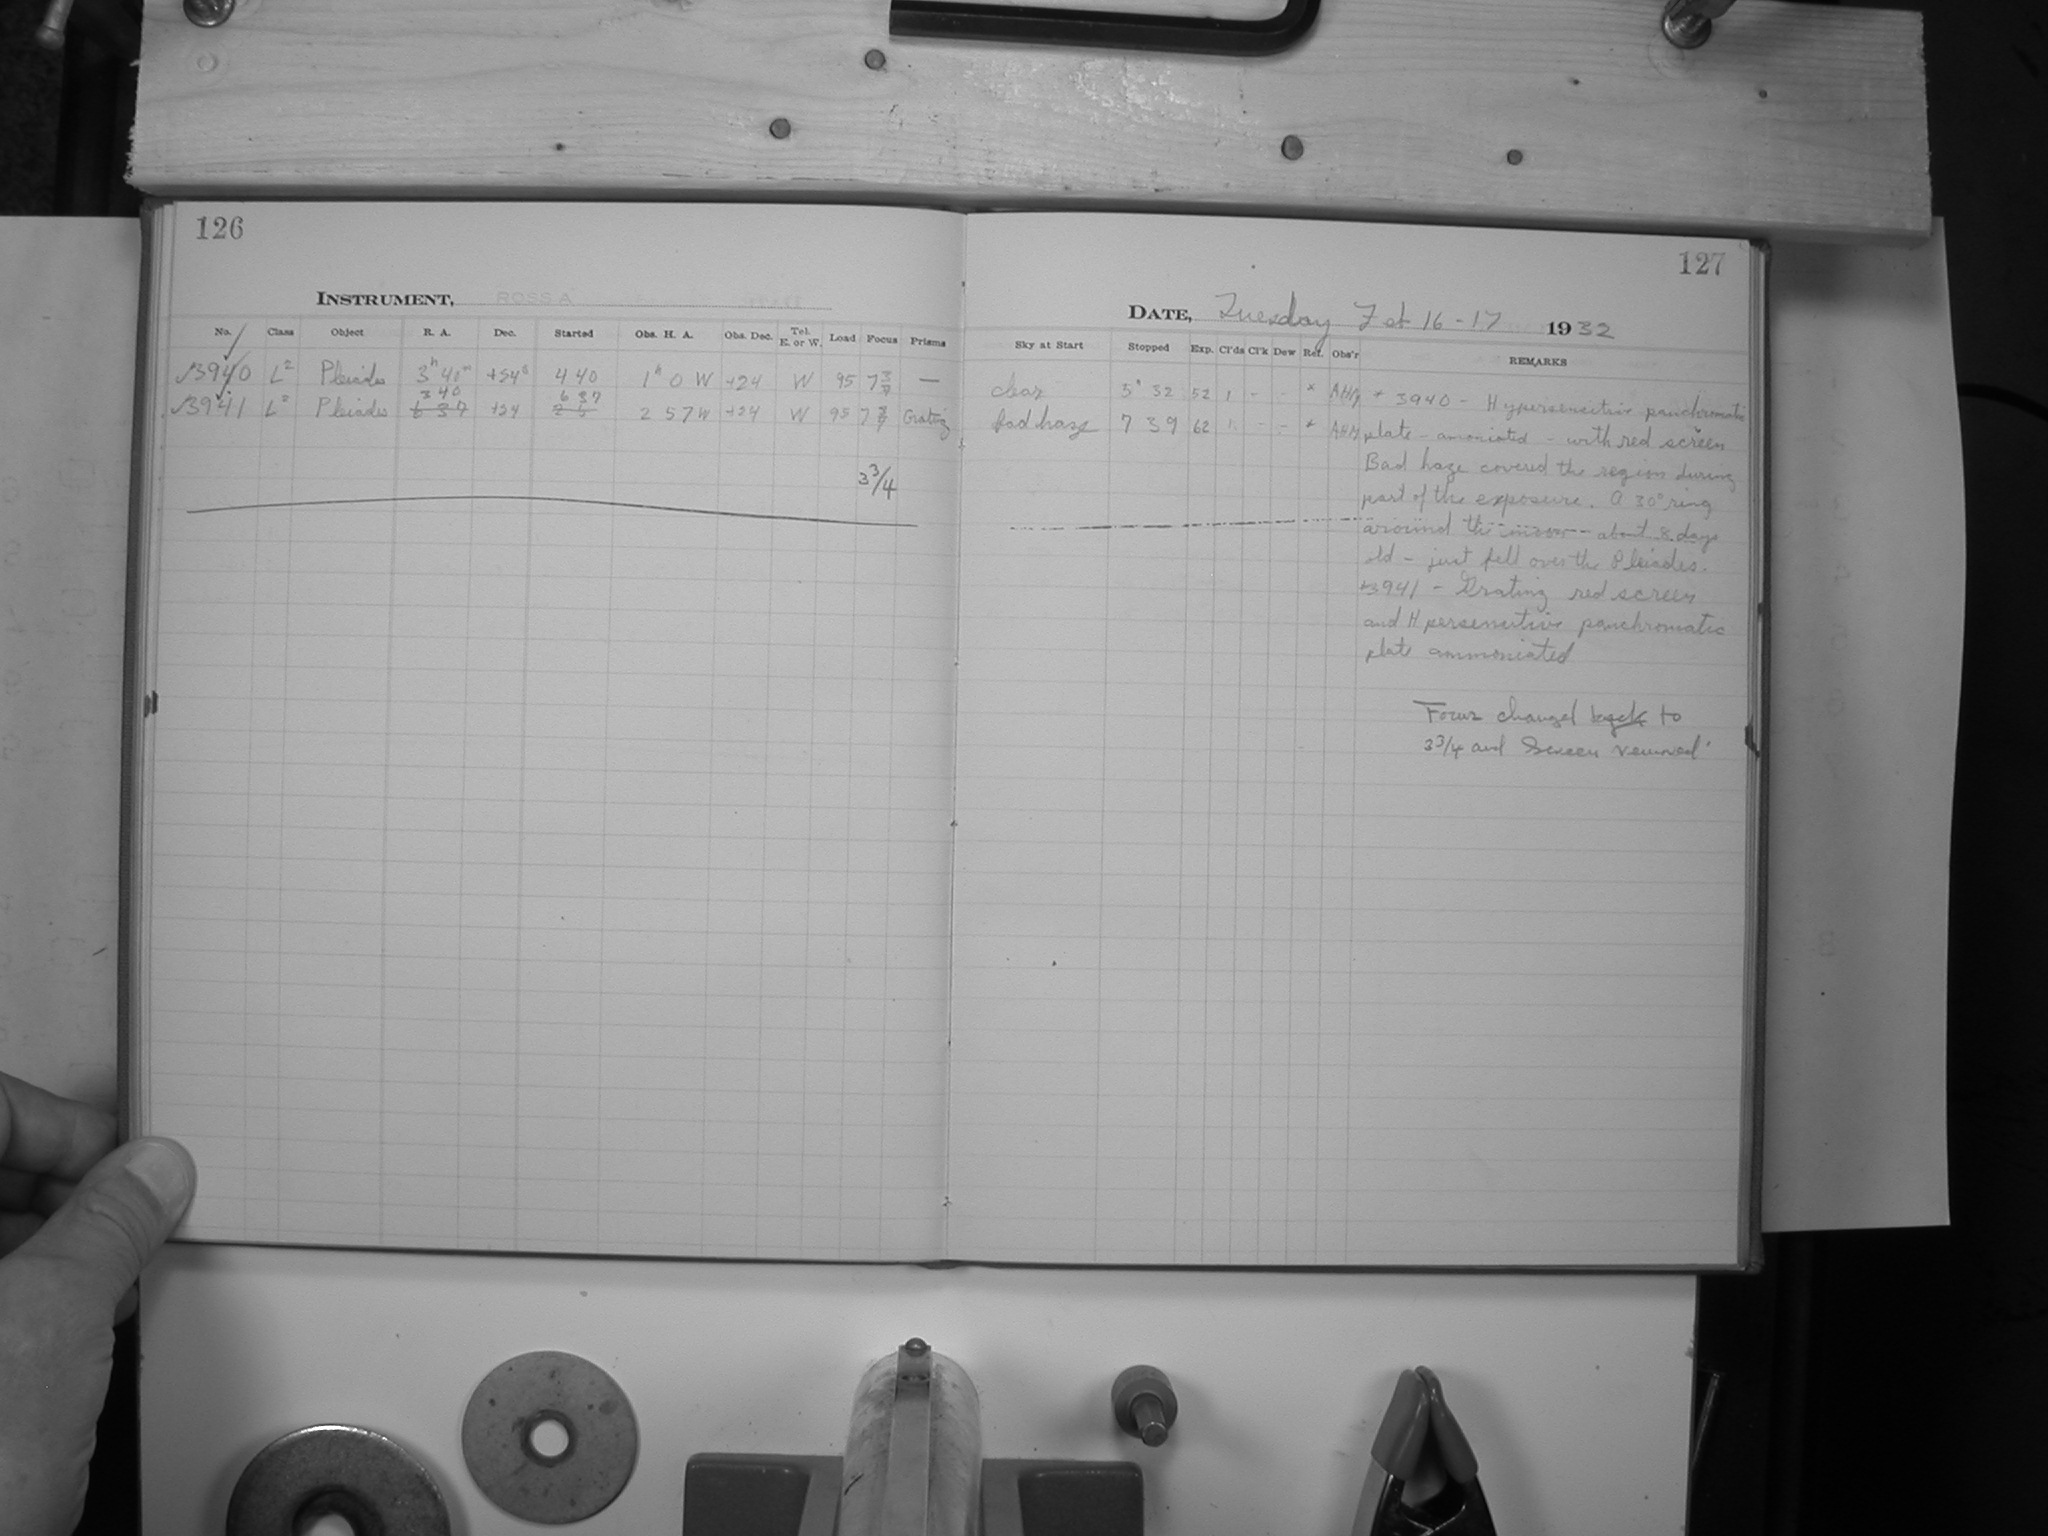 126
INSTRUMENT, ROSS A
No. Class Object R. A. Dec. Started Obs. H. A. Obs. Dec. Tel. E. or W. Load Focus Prisms
3940 L2 Pleiades 3h 40m 4 40 1h 0 W +24 W 95 7 —
3 40 6 37
3941 L2 Pleiades 6 37 +24 2 57 W +24 W 95 7 Grating
3 3/4
127
DATE, Tuesday Feb 16-17 1932
Sky at Start Stopped Exp. Cl'ds Cl'k Dew Ref. Obs'r REMARKS
clear 5 32 52 1 - - * AHM * 3940 - Hypersensitive panchromatic
Bad haze 7 39 62 1 - - * AHM plate - amoniated - with red screen
Bad haze covered the region during
part of the exposure. A 30° ring
around the moon - about 8 days
old - just fell over the Pleiades.
*3941 - Grating red screen
and Hpersensitive panchromatic
plate ammoniated
Focus changed back to
3 3/4 and Screen removed